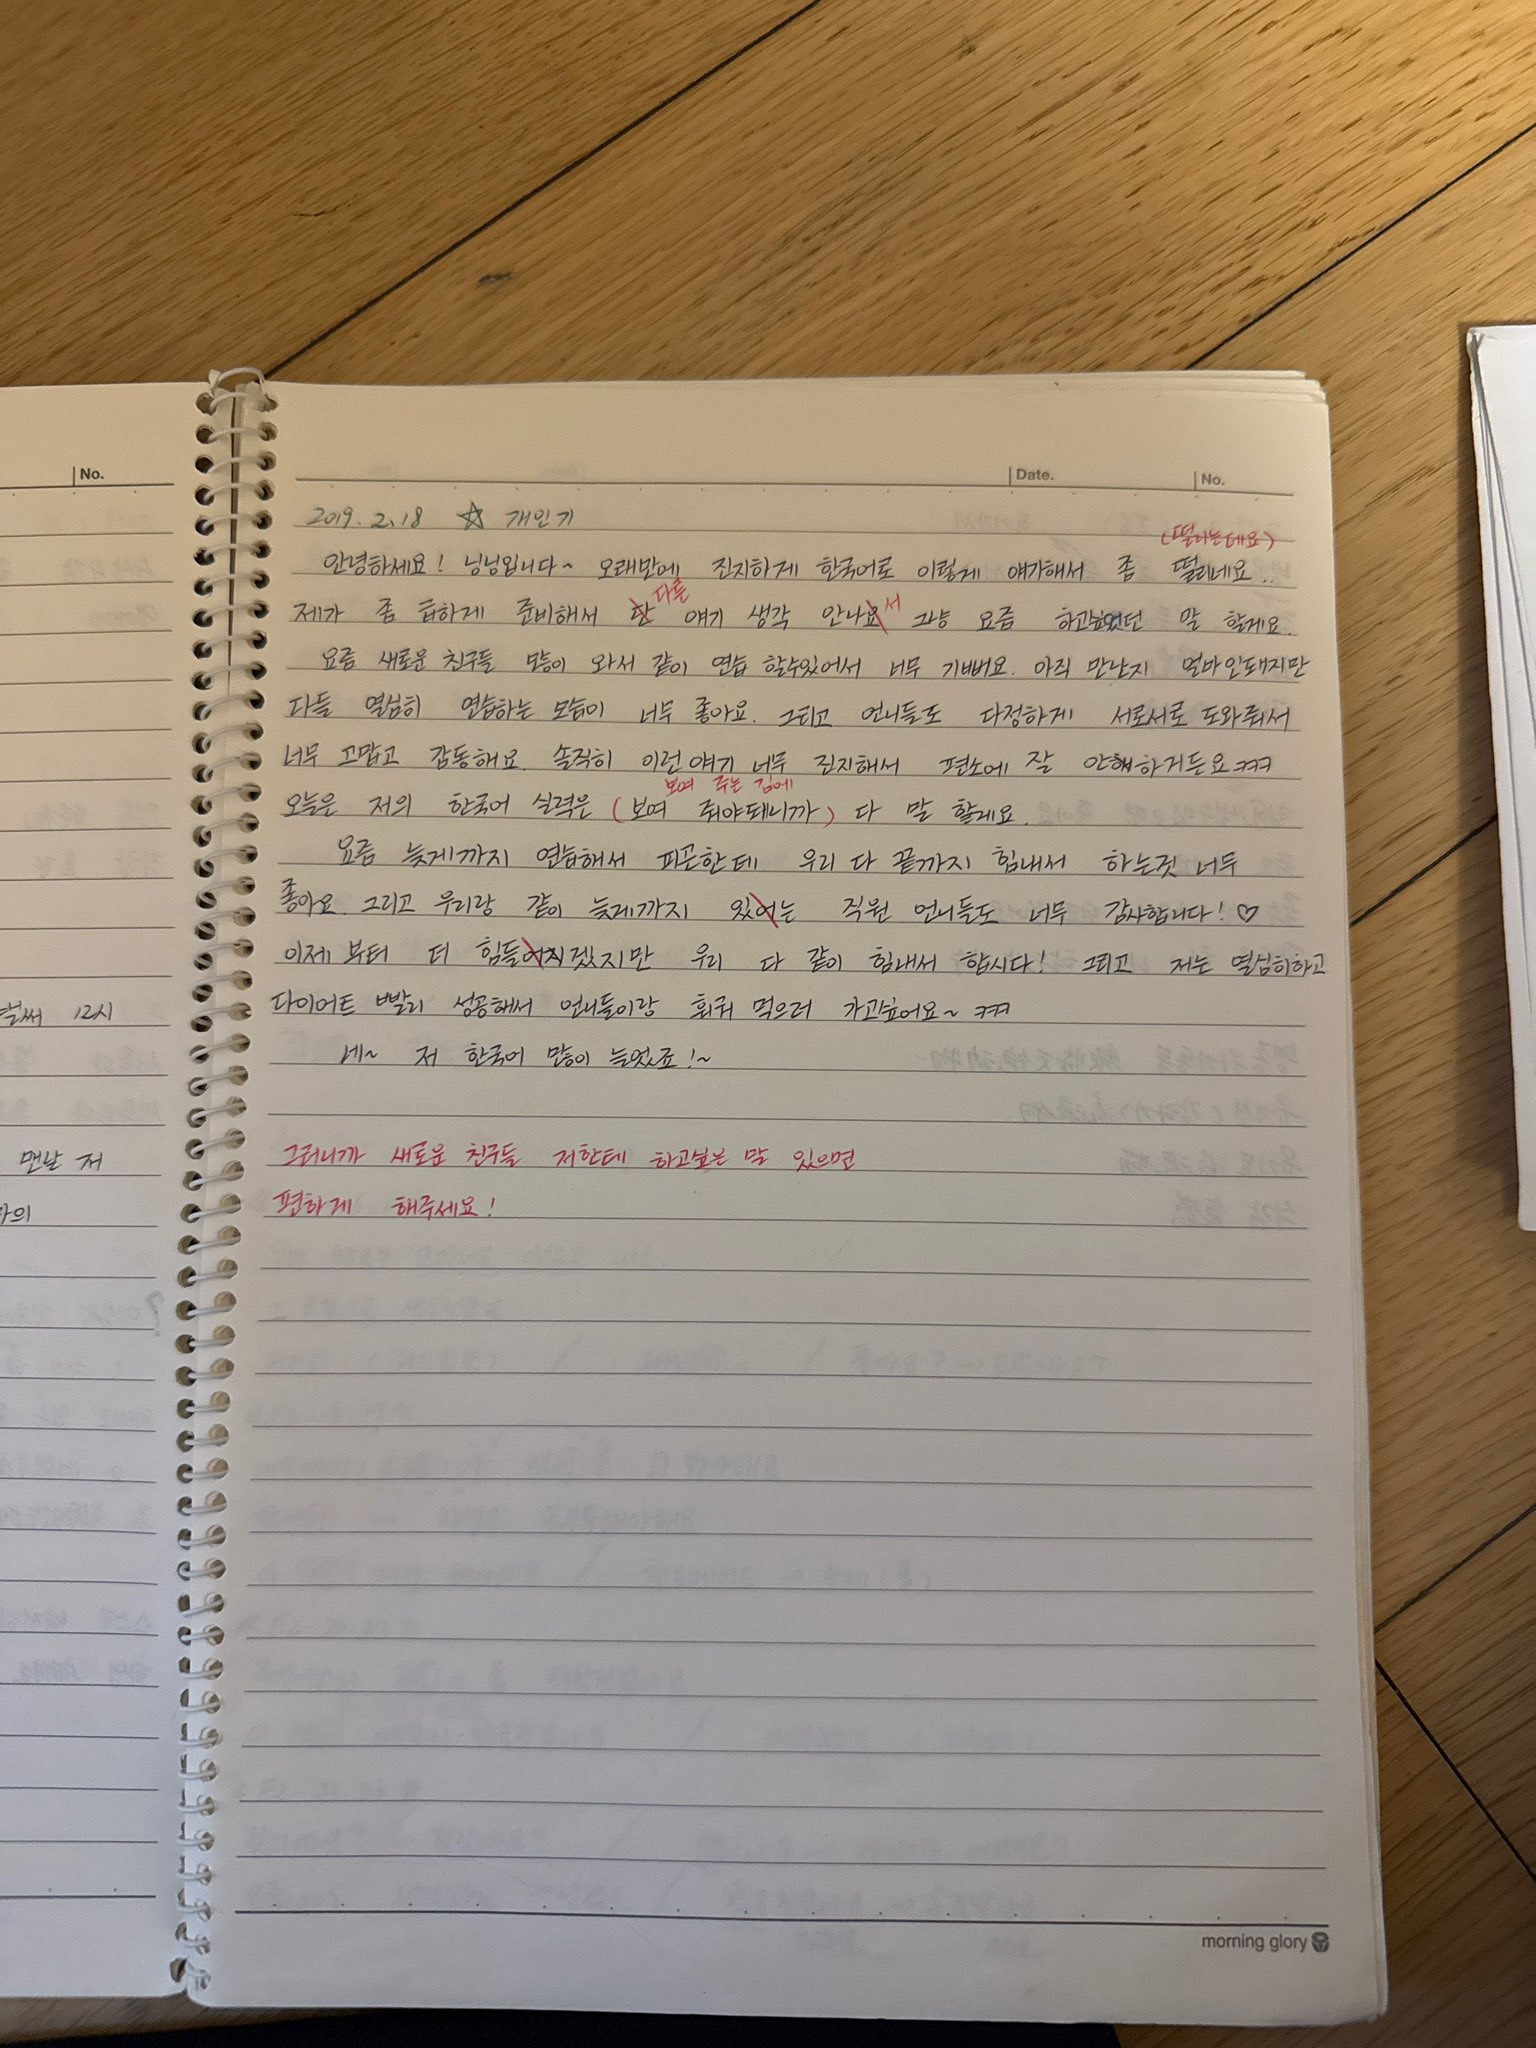 No.
벌써 12시
맨날 저
Date. No.
2019. 2. 18 ☆ 개인기
(떨리는데요)
안녕하세요! 닝닝입니다~ 오래만에 진지하게 한국어로 이렇게 얘기해서 좀 떨리네요..
다른
제가 좀 급하게 준비해서 딴 얘기 생각 안나요서 그냥 요즘 하고싶었던 말 할게요.
요즘 새로운 친구들 많이 와서 같이 연습 할수있어서 너무 기뻐요. 아직 만난지 얼마안돼지만
다들 열심히 연습하는 모습이 너무 좋아요. 그리고 언니들도 다정하게 서로서로 도와줘서
너무 고맙고 감동해요. 솔직히 이런 얘기 너무 진지해서 편소에 잘 안해하거든요 ㅋㅋㅋ
보여 주는 김에
오늘은 저의 한국어 실력은 (보여 줘야돼니까) 다 말 할게요.
요즘 늦게까지 연습해서 피곤한데 우리 다 끝까지 힘내서 하는것 너무
좋아요. 그리고 우리랑 같이 늦게까지 있어는 직원 언니들도 너무 감사합니다! ♡
이제 부터 더 힘들어지겠지만 우리 다 같이 힘내서 합시다! 그리고 저는 열심히하고
다이어트 빨리 성공해서 언니들이랑 훠궈 먹으러 가고싶어요~ ㅋㅋㅋ
네~ 저 한국어 많이 늘었죠!~
그러니까 새로운 친구들 저한테 하고싶은 말 있으면
편하게 해주세요!
morning glory